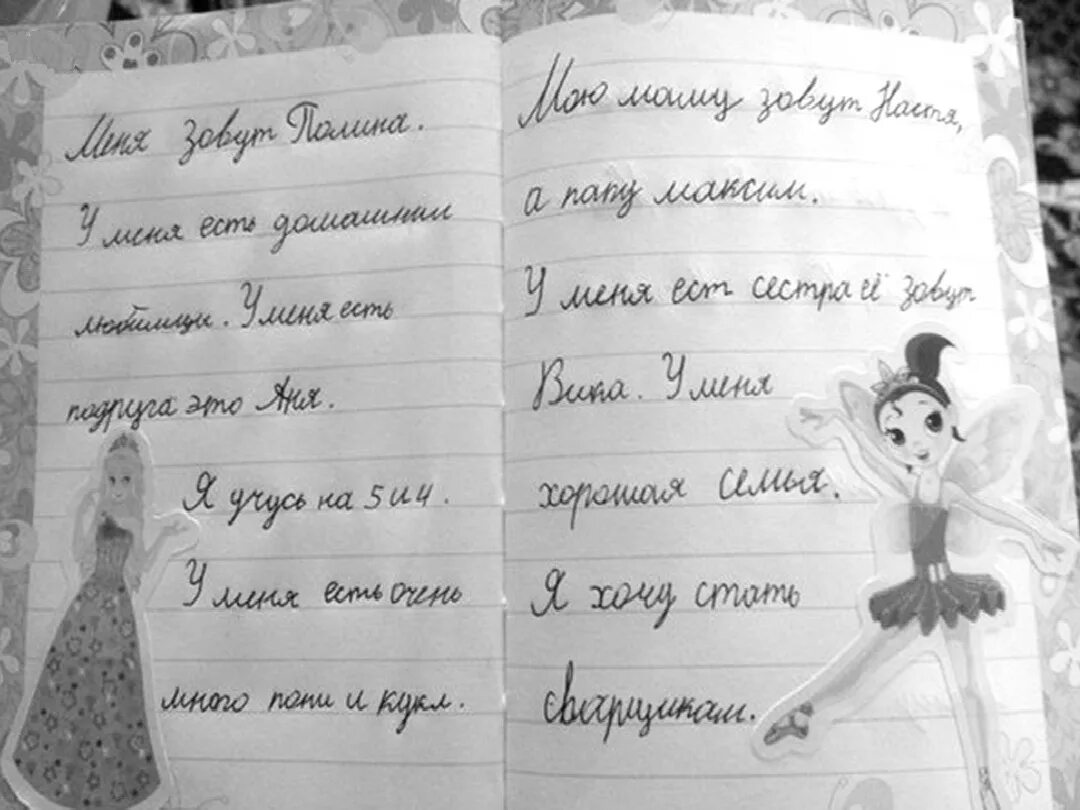 Меня зовут Полина.
У меня есть домашнии
любимцы. У меня есть
подруга это Аня.
Я учусь на 5 и 4.
У меня есть очень
много пони и кукл.
Мою маму зовут Настя,
а папу максим.
У меня ест сестра её зовут
Вика. У меня
хорошая семья.
Я хочу стать
сварщикам.